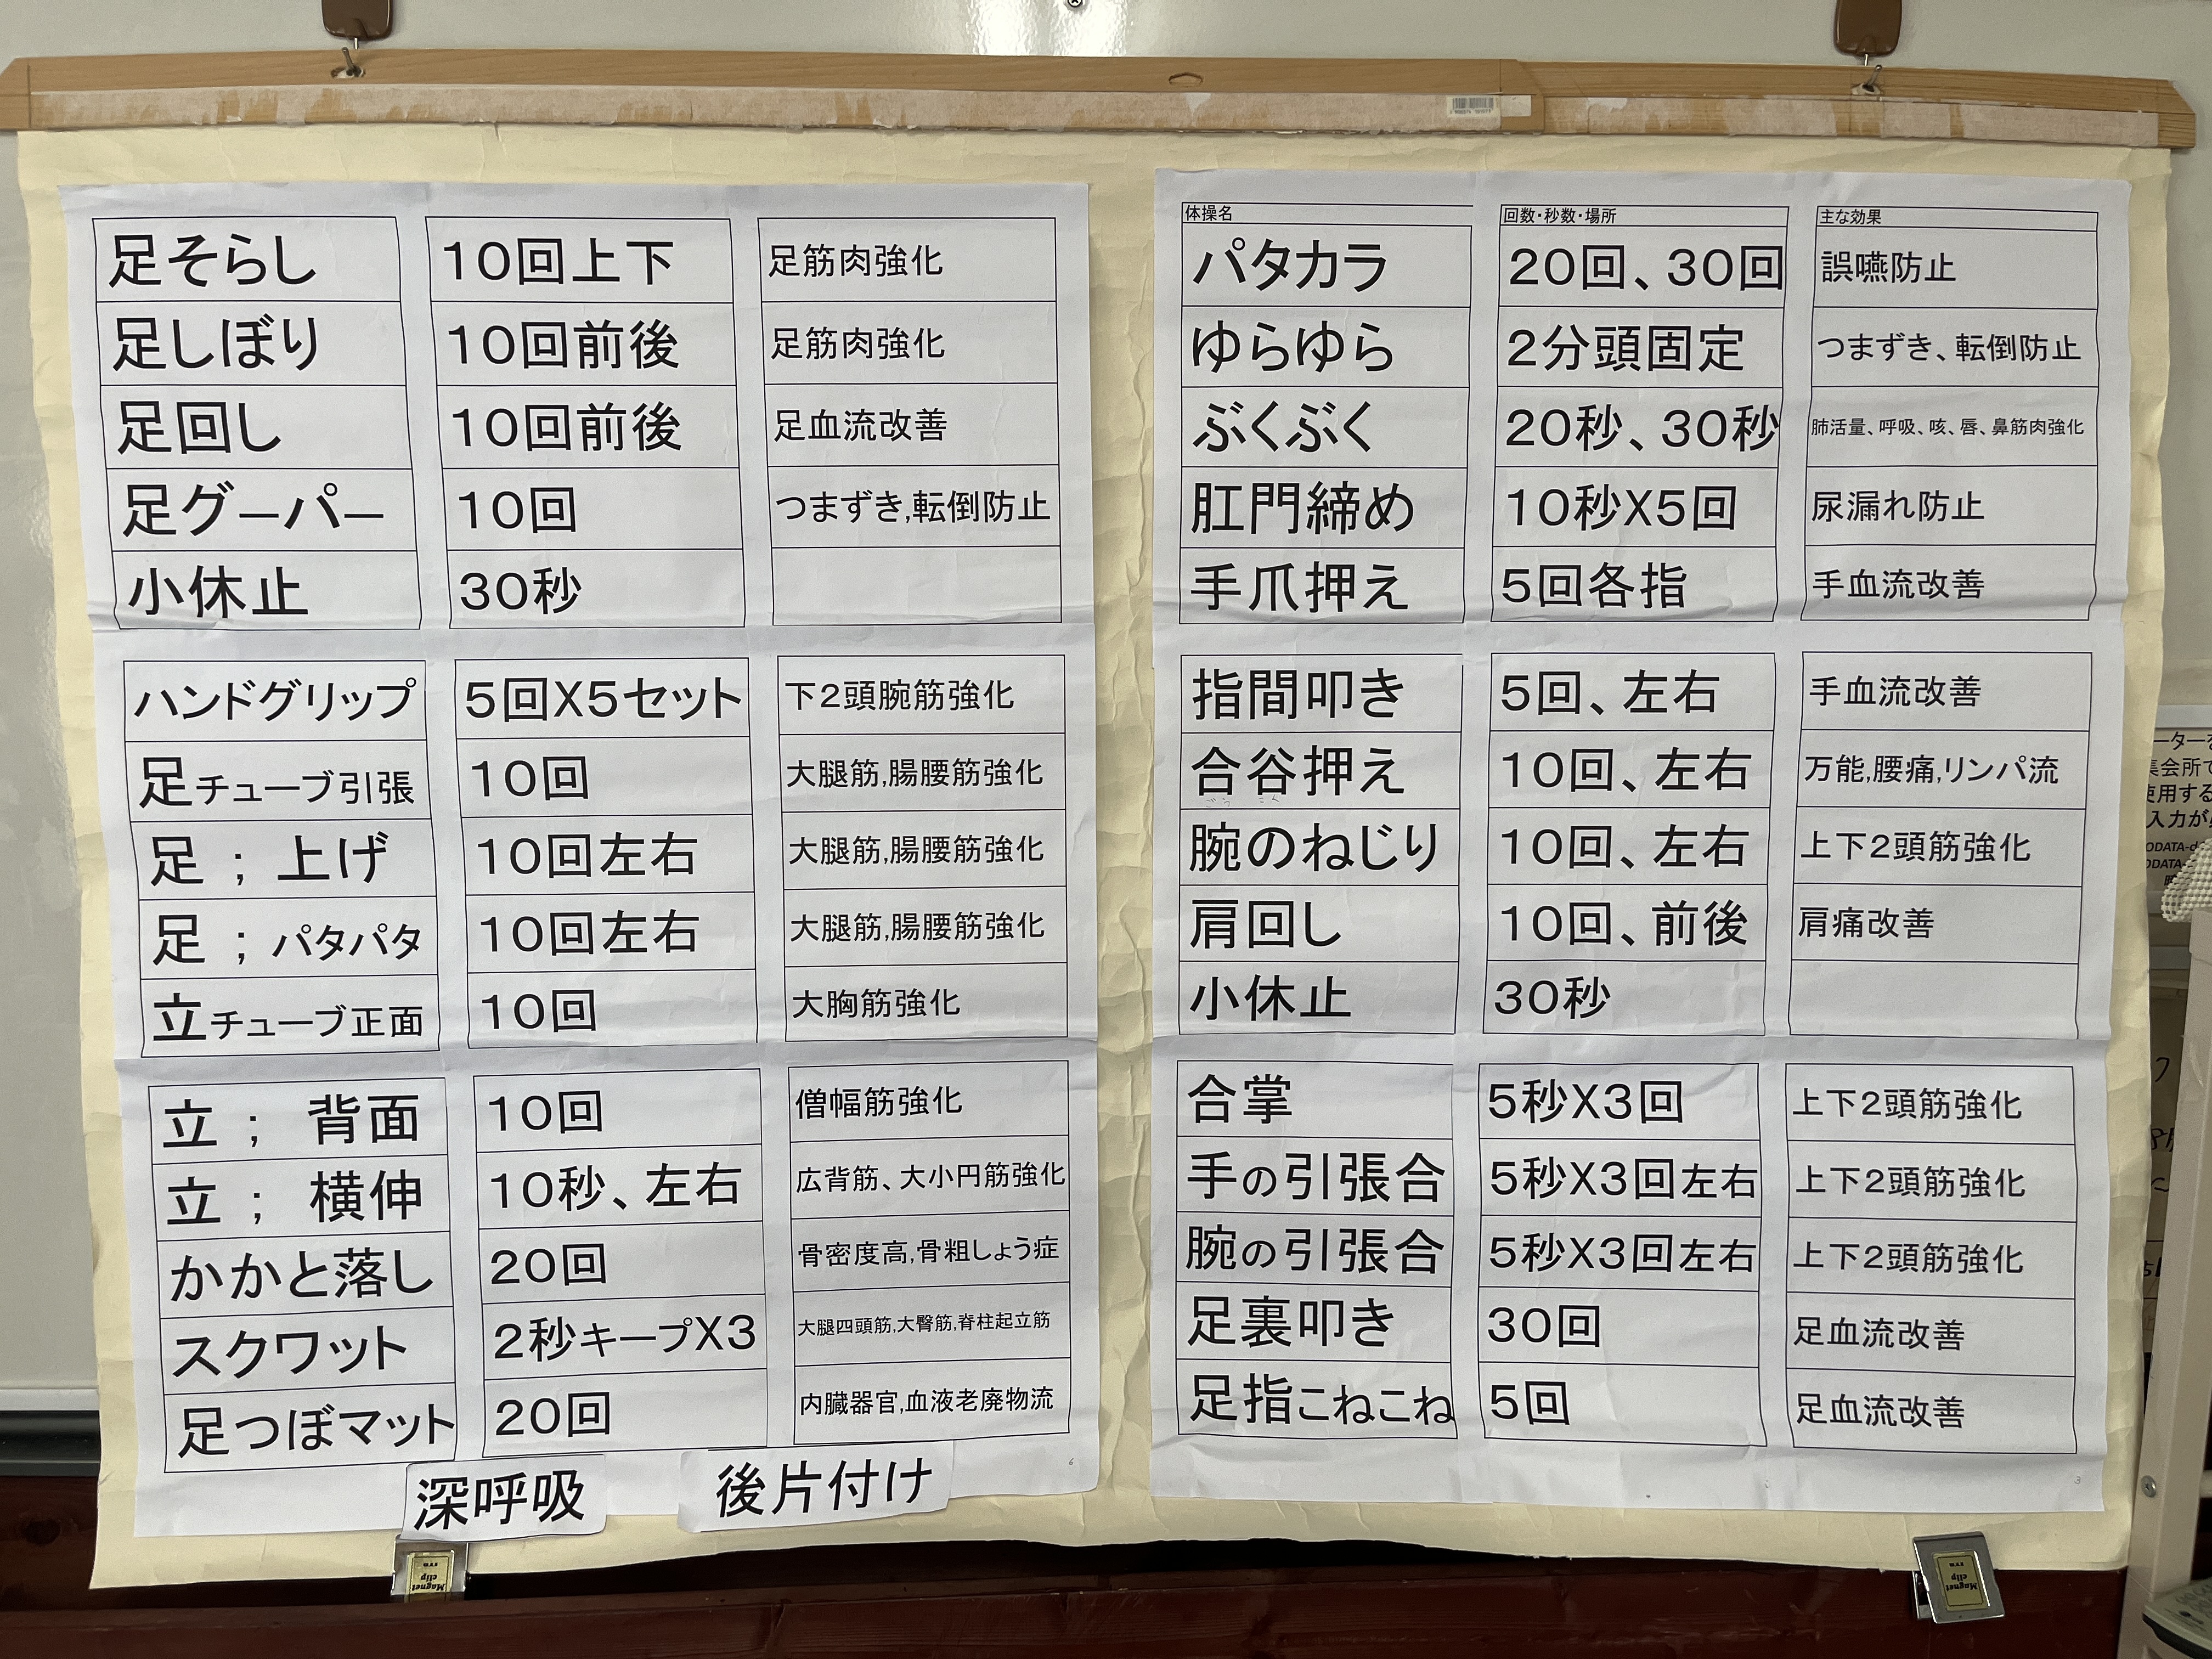 体操名 回数・秒数・場所 主な効果
パタカラ 20回、30回 誤嚥防止
ゆらゆら 2分頭固定 つまずき、転倒防止
ぶくぶく 20秒、30秒 肺活量、呼吸、咳、唇、鼻筋肉強化
肛門締め 10秒X5回 尿漏れ防止
手爪押え 5回各指 手血流改善
指間叩き 5回、左右 手血流改善
合谷押え 10回、左右 万能,腰痛,リンパ流
腕のねじり 10回、左右 上下2頭筋強化
肩回し 10回、前後 肩痛改善
小休止 30秒
合掌 5秒X3回 上下2頭筋強化
手の引張合 5秒X3回左右 上下2頭筋強化
腕の引張合 5秒X3回左右 上下2頭筋強化
足裏叩き 30回 足血流改善
足指こねこね 5回 足血流改善
3
足そらし 10回上下 足筋肉強化
足しぼり 10回前後 足筋肉強化
足回し 10回前後 足血流改善
足グーパー 10回 つまずき,転倒防止
小休止 30秒
ハンドグリップ 5回X5セット 下2頭腕筋強化
足チューブ引張 10回 大腿筋,腸腰筋強化
足 ; 上げ 10回左右 大腿筋,腸腰筋強化
足 ; パタパタ 10回左右 大腿筋,腸腰筋強化
立チューブ正面 10回 大胸筋強化
立 ; 背面 10回 僧幅筋強化
立 ; 横伸 10秒、左右 広背筋、大小円筋強化
かかと落し 20回 骨密度高,骨粗しょう症
スクワット 2秒キープX3 大腿四頭筋,大臀筋,脊柱起立筋
足つぼマット 20回 内臓器官,血液老廃物流
6
深呼吸 後片付け
Magnet clip
Magnet clip